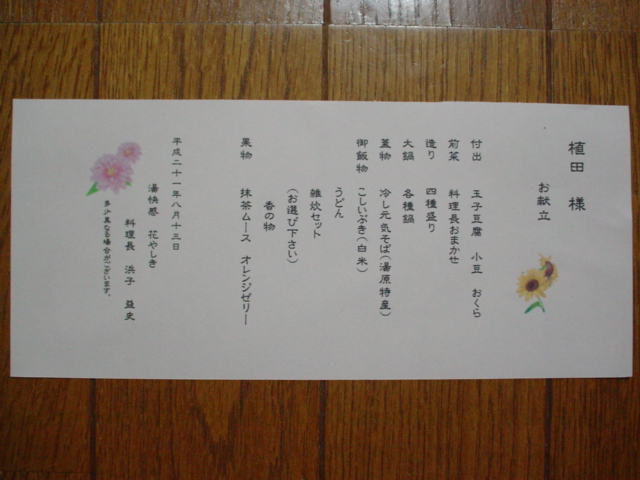 植田 様
お献立
付出 玉子豆腐 小豆 おくら
前菜 料理長おまかせ
造り 四種盛り
大鍋 各種鍋
蓋物 冷し元気そば(湯原特産)
御飯物 こしいぶき(白米)
うどん
雑炊セット
(お選び下さい)
香の物
果物 抹茶ムース オレンジゼリー
平成二十一年八月十三日
湯快感 花やしき
料理長 浜子 益史
多少異なる場合がございます。